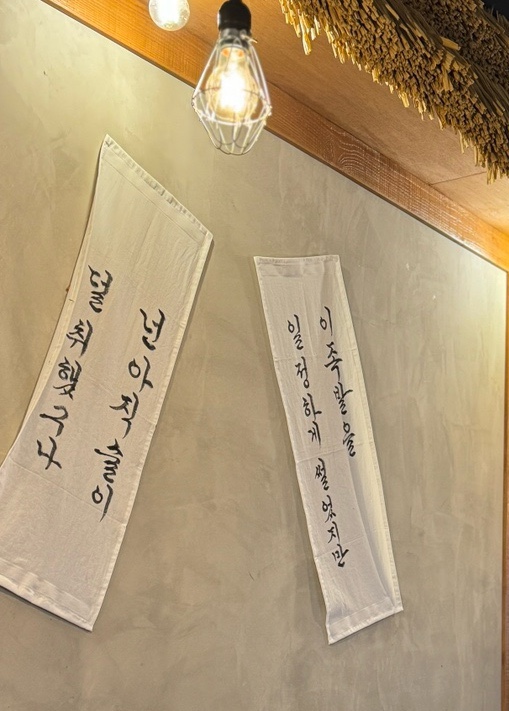 이 족발을
일정하게 썰었지만
넌 아직 술이
덜 취했구나